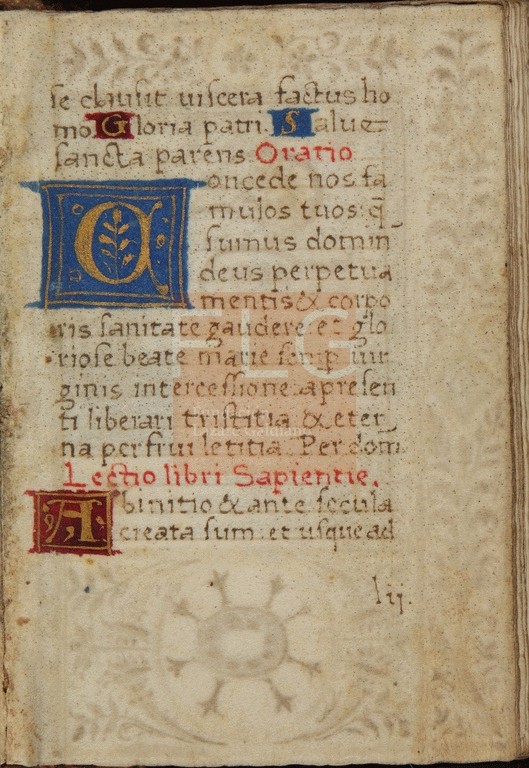 se clausit viscera factus ho
mo. Gloria patri. Salue
sancta parens Oratio
Concede nos fa
mulos tuos: q̄
sumus domin̄
deus perpetua
mentis & corpo
ris sanitate gaudere: et glo
riose beate marie semp̄ uir
ginis intercessione: a presen
ti liberari tristitia & eter
na perfrui letitia. Per dom̄.
Lectio libri Sapientie.
Ab initio & ante secula
creata sum: et usque ad
lij.
FLG
Lázaro Galdiano